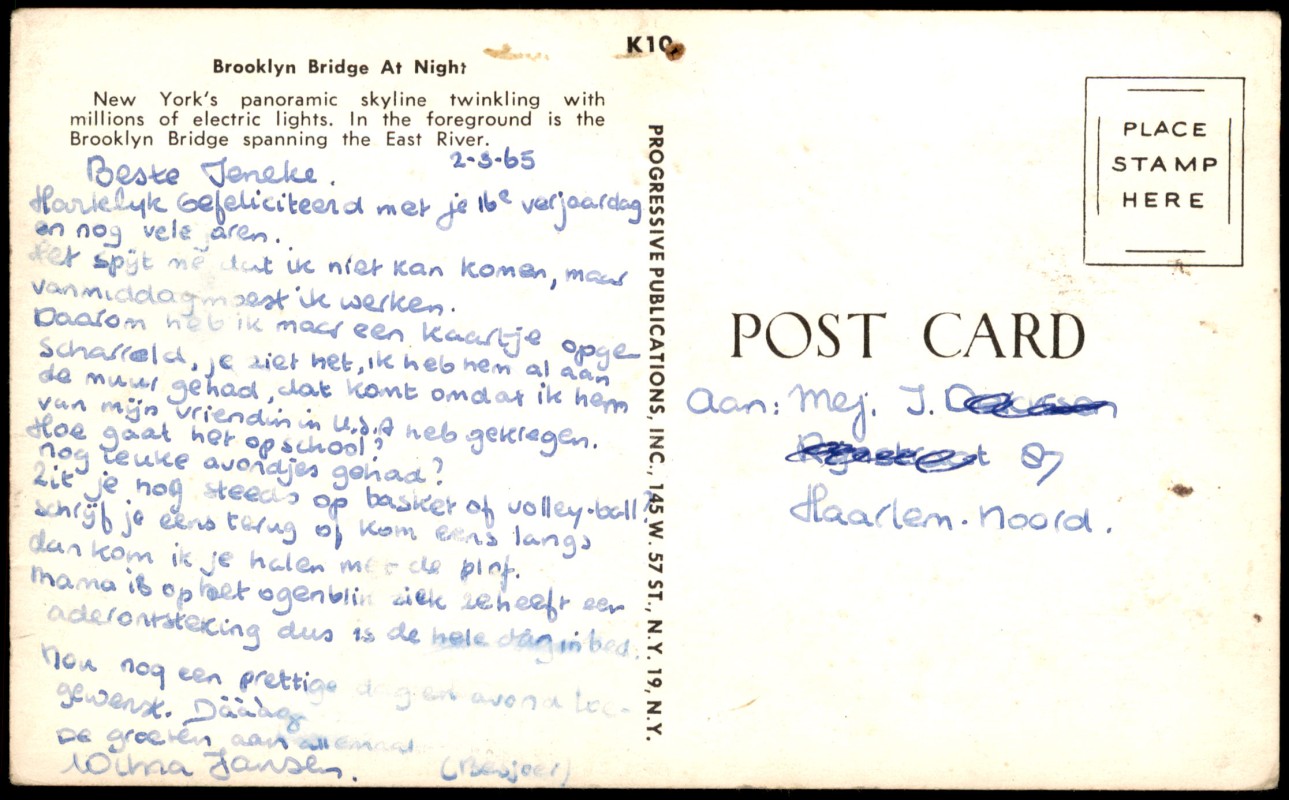 K10
Brooklyn Bridge At Night
New York's panoramic skyline twinkling with
millions of electric lights. In the foreground is the
Brooklyn Bridge spanning the East River.
2-3-65
Beste Jeneke.
Hartelyk Gefeliciteerd met je 16e verjaardag
en nog vele jaren.
Het spijt me dat ik niet kan komen, maar
vanmiddag moest ik werken.
Daarom heb ik maar een kaartje opge
scharreld, je ziet het, ik heb hem al aan
de muur gehad, dat komt omdat ik hem
van mijn vriendin in U.S.A heb gekregen.
Hoe gaat het op school?
nog leuke avondjes gehad?
Zit je nog steeds op basket of volley-ball?
schrijf je eens terug of kom eens langs
dan kom ik je halen met de plof.
Mama is op het ogenblik ziek ze heeft een
aderontsteking dus is de hele dag in bed.
Nou nog een prettige dag en avond toe-
gewenst. Dääääg
De groeten aan allemaal
Wilma Jansen.
PROGRESSIVE PUBLICATIONS, INC., 145 W. 57 ST., N.Y. 19, N.Y.
PLACE
STAMP
HERE
POST CARD
Aan: Mej. J.
87
Haarlem-Noord.